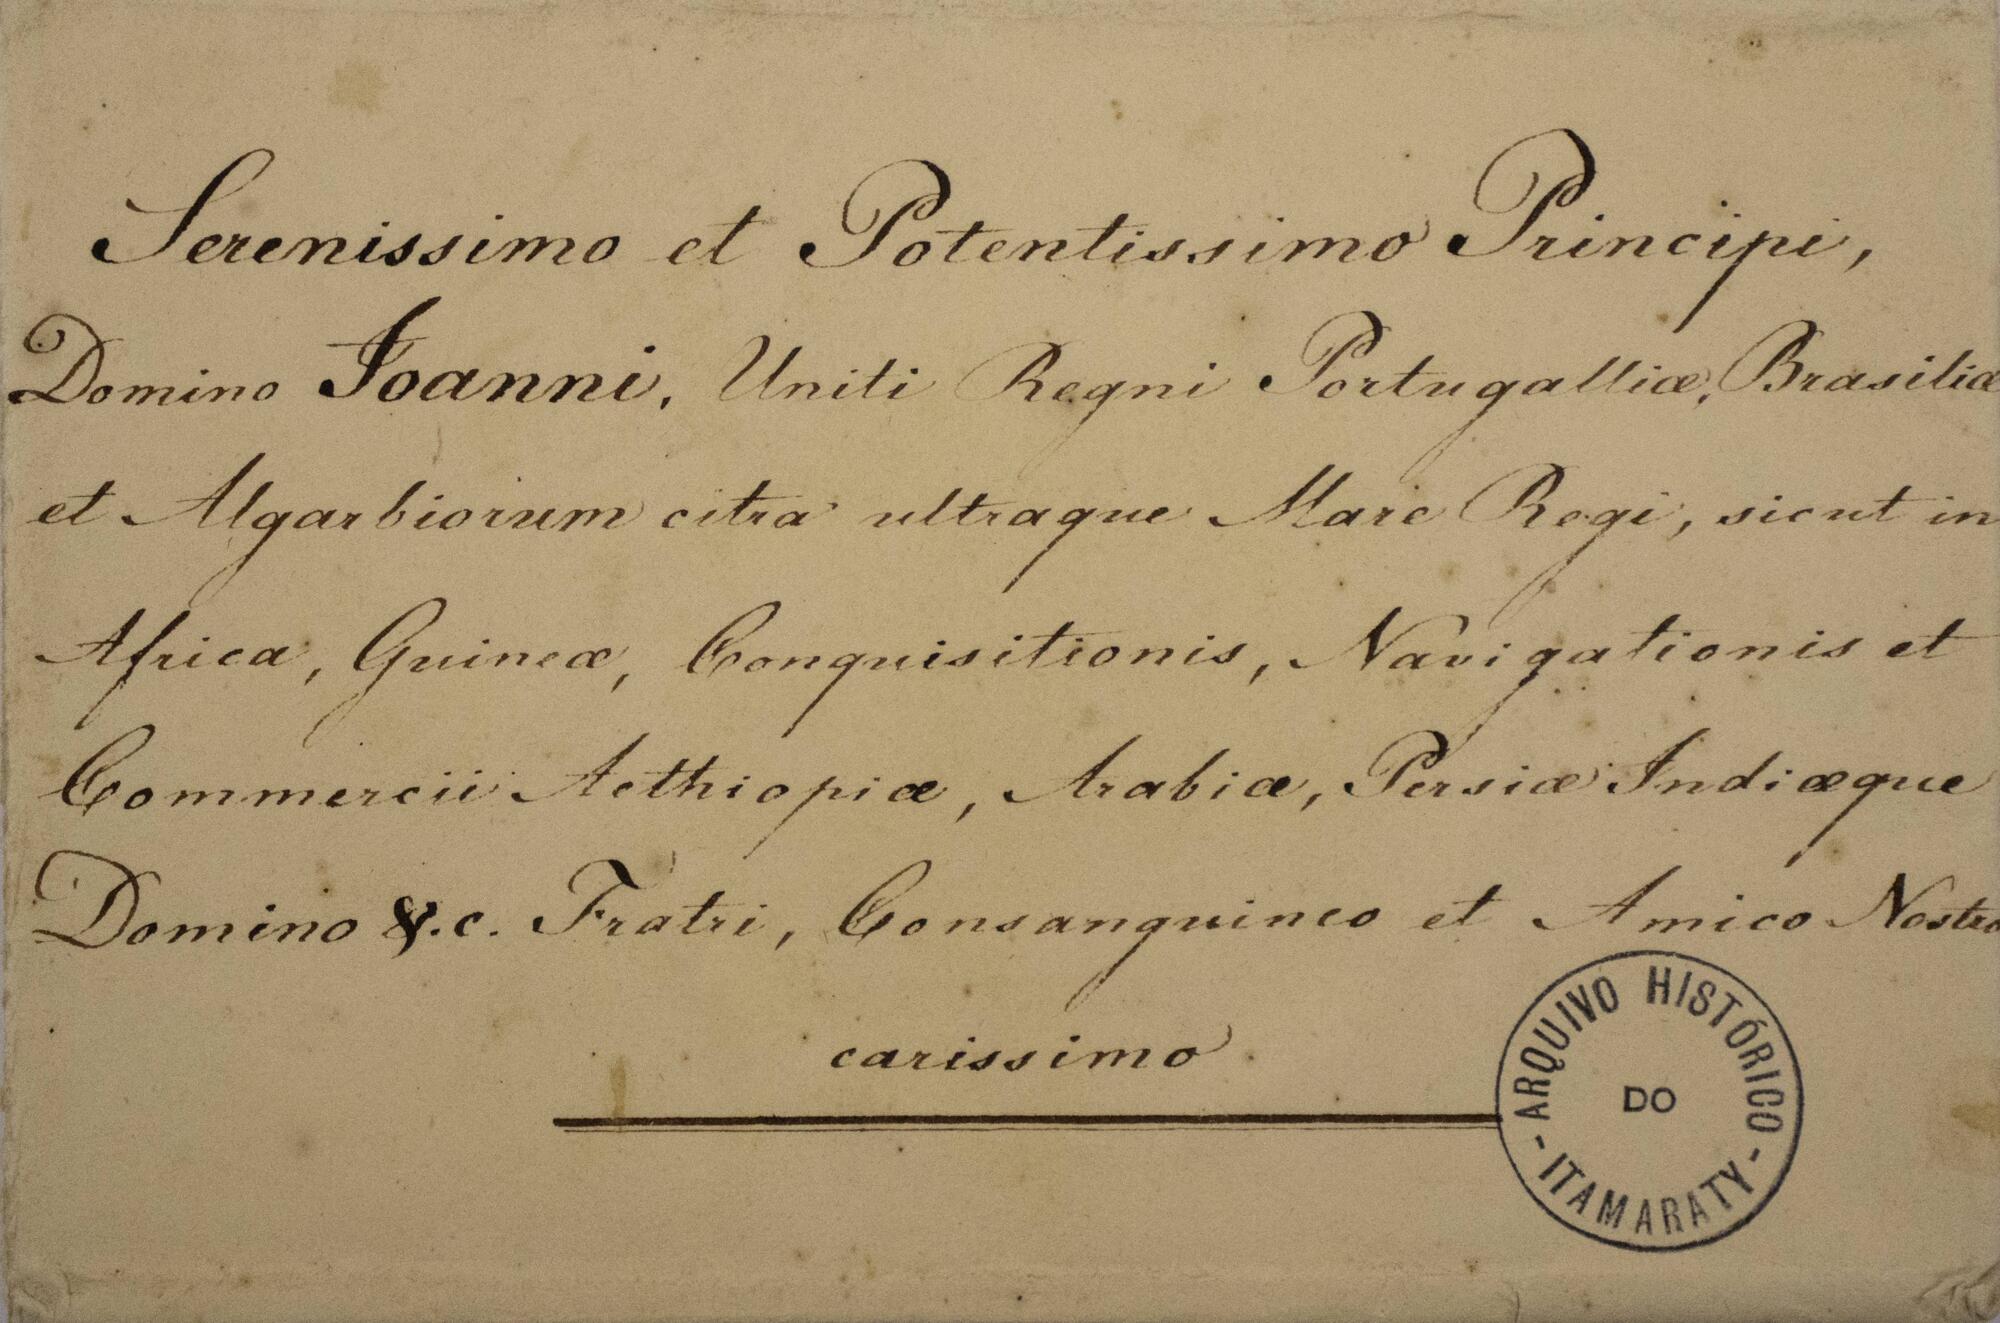 Serenissimo et Potentissimo Principi,
Domino Ioanni, Uniti Regni Portugalliæ, Brasiliæ
et Algarbiorum citra ultraque Mare Regi, sicut in
Africa, Guineæ, Conquisitionis, Navigationis et
Commercii Aethiopiæ, Arabiæ, Persiæ Indiæque
Domino &.c. Fratri, Consanguineo et Amico Nostro
carissimo.
ARQUIVO HISTÓRICO
DO
- ITAMARATY -